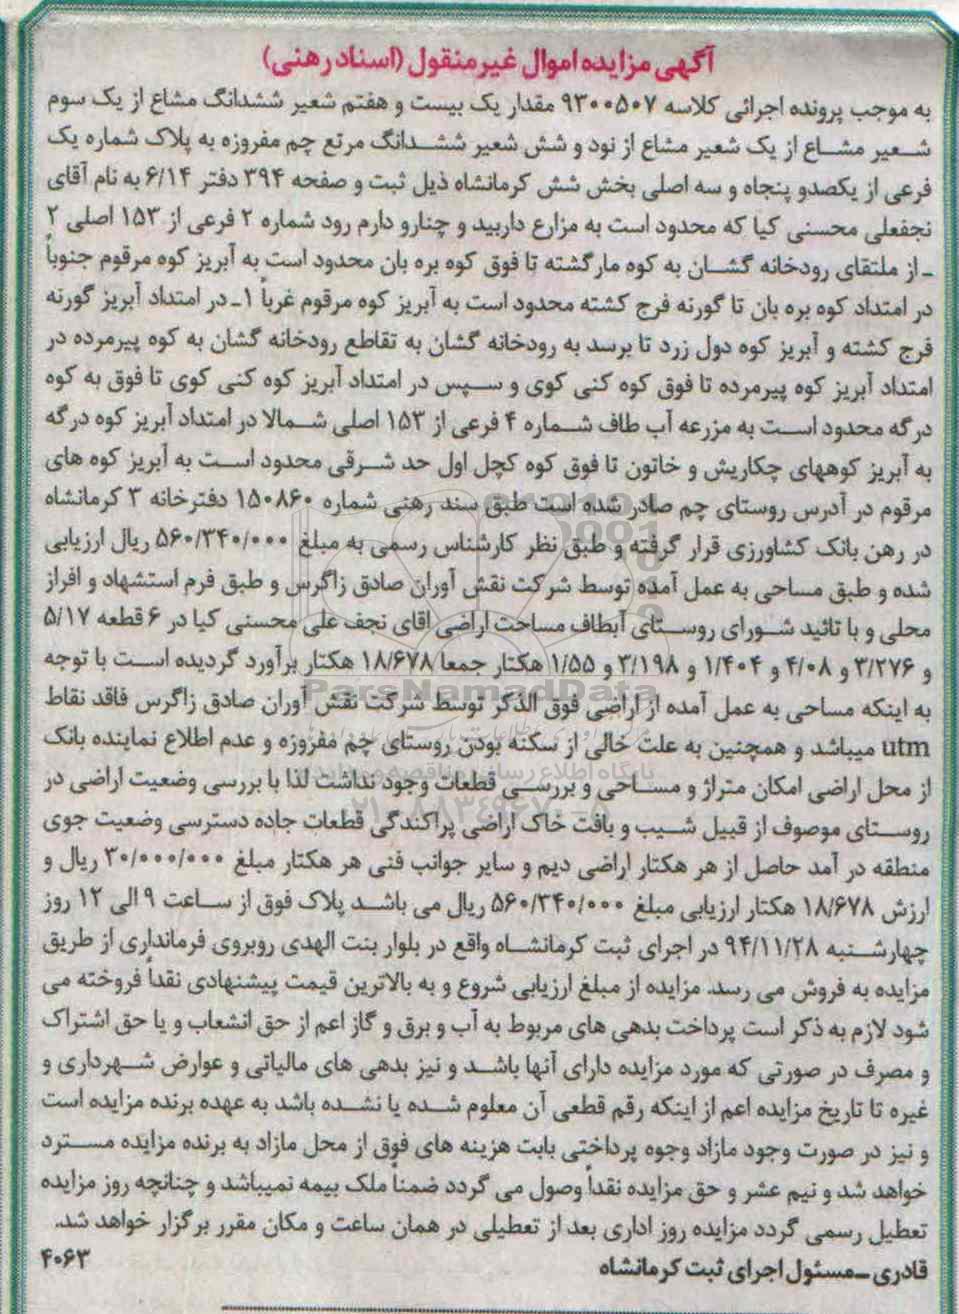 آگهی مزایده اموال غیرمنقول (اسناد رهنی)
به موجب پرونده اجرائی کلاسه ۹۳۰۰۵۰۷ مقدار یک بیست و هفتم شعیر ششدانگ مشاع از یک سوم
شعیر مشاع از یک شعیر مشاع از نود و شش شعیر ششدانگ مرتع چم مفروزه به پلاک شماره یک
فرعی از یکصدو پنجاه و سه اصلی بخش شش کرمانشاه ذیل ثبت و صفحه ۳۹۴ دفتر ۶/۱۴ به نام آقای
نجفعلی محسنی کیا که محدود است به مزارع داربید و چنارو دارم رود شماره ۲ فرعی از ۱۵۳ اصلی ۲
ـ از ملتقای رودخانه گشان به کوه مارگشته تا فوق کوه بره بان محدود است به آبریز کوه مرقوم جنوباً
در امتداد کوه بره بان تا گورنه فرج کشته محدود است به آبریز کوه مرقوم غرباً ۱ـ در امتداد آبریز گورنه
فرج کشته و آبریز کوه دول زرد تا برسد به رودخانه گشان به تقاطع رودخانه گشان به کوه پیرمرده در
امتداد آبریز کوه پیرمرده تا فوق کوه کنی کوی و سپس در امتداد آبریز کوه کنی کوی تا فوق به کوه
درگه محدود است به مزرعه آب طاف شماره ۴ فرعی از ۱۵۳ اصلی شمالا در امتداد آبریز کوه درگه
به آبریز کوههای چکاریش و خاتون تا فوق کوه کچل اول حد شرقی محدود است به آبریز کوه های
مرقوم در آدرس روستای چم صادر شده است طبق سند رهنی شماره ۱۵۰۸۶۰ دفترخانه ۳ کرمانشاه
در رهن بانک کشاورزی قرار گرفته و طبق نظر کارشناس رسمی به مبلغ ۵۶۰/۳۴۰/۰۰۰ ریال ارزیابی
شده و طبق مساحی به عمل آمده توسط شرکت نقش آوران صادق زاگرس و طبق فرم استشهاد و افراز
محلی و با تائید شورای روستای آبطاف مساحت اراضی اقای نجف علی محسنی کیا در ۶ قطعه ۵/۱۷
و ۳/۲۷۶ و ۴/۰۸ و ۱/۴۰۴ و ۳/۱۹۸ و ۱/۵۵ هکتار جمعا ۱۸/۶۷۸ هکتار برآورد گردیده است با توجه
به اینکه مساحی به عمل آمده از اراضی فوق الذکر توسط شرکت نقش آوران صادق زاگرس فاقد نقاط
utm میباشد و همچنین به علت خالی از سکنه بودن روستای چم مفروزه و عدم اطلاع نماینده بانک
از محل اراضی امکان متراژ و مساحی و بررسی قطعات وجود نداشت لذا با بررسی وضعیت اراضی در
روستای موصوف از قبیل شیب و بافت خاک اراضی پراکندگی قطعات جاده دسترسی وضعیت جوی
منطقه در آمد حاصل از هر هکتار اراضی دیم و سایر جوانب فنی هر هکتار مبلغ ۳۰/۰۰۰/۰۰۰ ریال و
ارزش ۱۸/۶۷۸ هکتار ارزیابی مبلغ ۵۶۰/۳۴۰/۰۰۰ ریال می باشد پلاک فوق از ساعت ۹ الی ۱۲ روز
چهارشنبه ۹۴/۱۱/۲۸ در اجرای ثبت کرمانشاه واقع در بلوار بنت الهدی روبروی فرمانداری از طریق
مزایده به فروش می رسد. مزایده از مبلغ ارزیابی شروع و به بالاترین قیمت پیشنهادی نقداً فروخته می
شود لازم به ذکر است پرداخت بدهی های مربوط به آب و برق و گاز اعم از حق انشعاب و یا حق اشتراک
و مصرف در صورتی که مورد مزایده دارای آنها باشد و نیز بدهی های مالیاتی و عوارض شهرداری و
غیره تا تاریخ مزایده اعم از اینکه رقم قطعی آن معلوم شده یا نشده باشد به عهده برنده مزایده است
و نیز در صورت وجود مازاد وجوه پرداختی بابت هزینه های فوق از محل مازاد به برنده مزایده مسترد
خواهد شد و نیم عشر و حق مزایده نقداً وصول می گردد ضمناً ملک بیمه نمیباشد و چنانچه روز مزایده
تعطیل رسمی گردد مزایده روز اداری بعد از تعطیلی در همان ساعت و مکان مقرر برگزار خواهد شد.
قادری ـ مسئول اجرای ثبت کرمانشاه ۴۰۶۳
ParsNamadData
پایگاه اطلاع رسانی مناقصه و مزایده